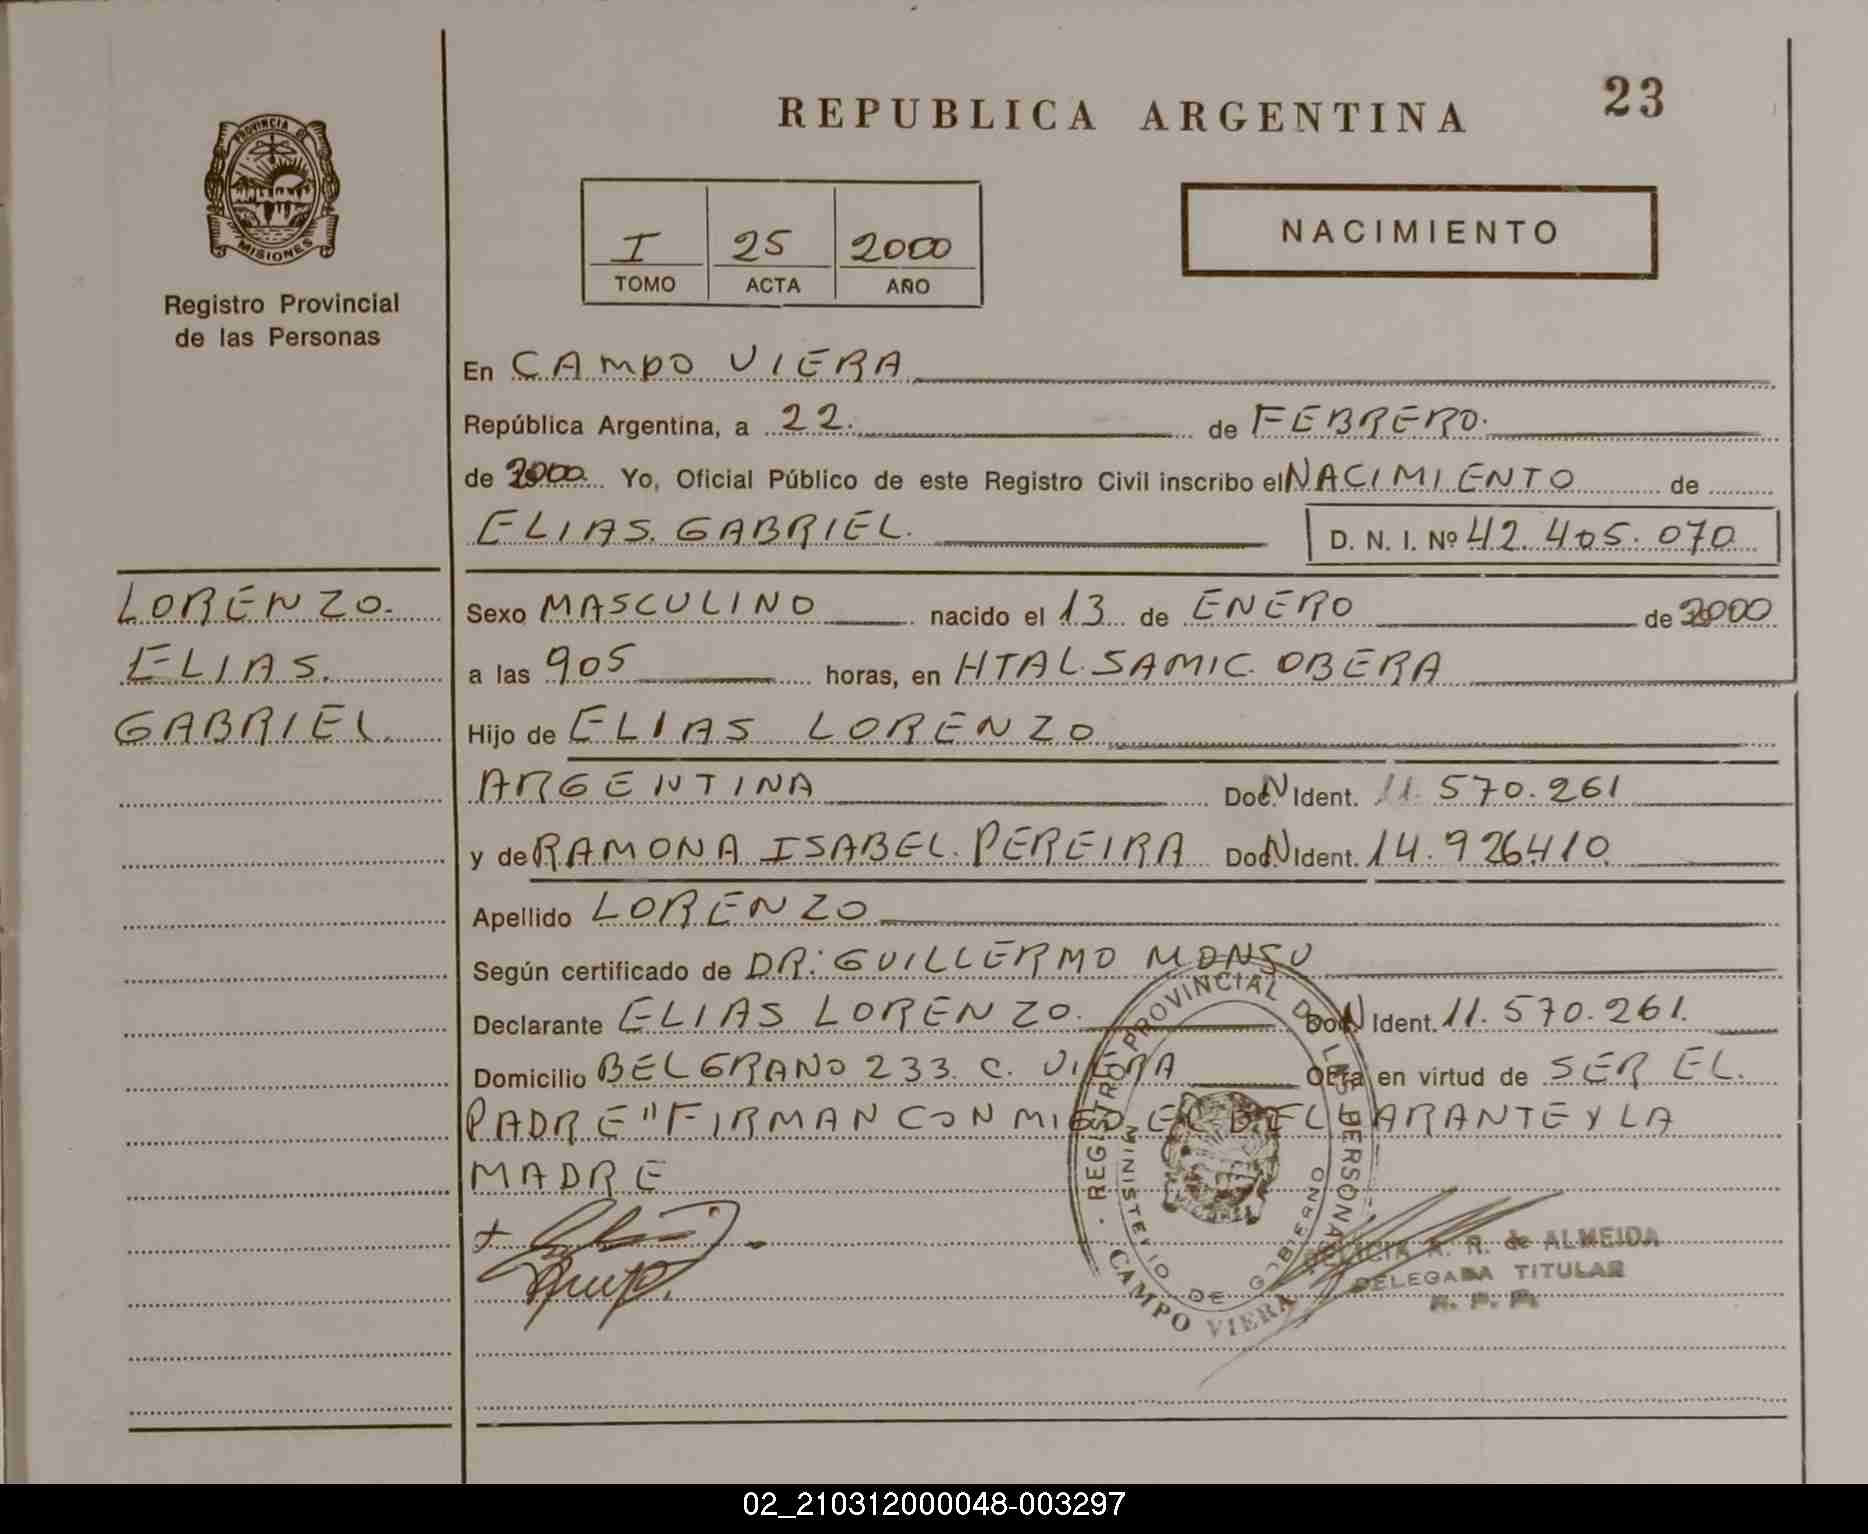 REPUBLICA ARGENTINA
23
PROVINCIA DE
MISIONES
Registro Provincial
de las Personas
I 25 2000
TOMO ACTA AÑO
NACIMIENTO
En CAMPO VIERA
República Argentina, a 22. de FEBRERO.
de 2000 Yo, Oficial Público de este Registro Civil inscribo el NACIMIENTO de
ELIAS. GABRIEL. D. N. I. Nº 42.405.070
LORENZO.
ELIAS.
GABRIEL
Sexo MASCULINO nacido el 13 de ENERO de 2000
a las 905 horas, en HTAL. SAMIC. OBERA
Hijo de ELIAS LORENZO
ARGENTINA Doc. N Ident. 11.570.261
y de RAMONA ISABEL. PEREIRA Doc. N Ident. 14.926410
Apellido LORENZO
Según certificado de DR: GUILLERMO MONSU
Declarante ELIAS LORENZO. Doc. N Ident. 11.570.261.
Domicilio BELGRANO 233. C. VIERA Obra en virtud de SER EL.
PADRE "FIRMAN CONMIGO EL DECLARANTE Y LA
MADRE
REGISTRO PROVINCIAL DE LAS PERSONAS
MINISTERIO DE GOBIERNO
CAMPO VIERA
R. de ALMEIDA
DELEGADA TITULAR
R. P. P.
02_210312000048-003297